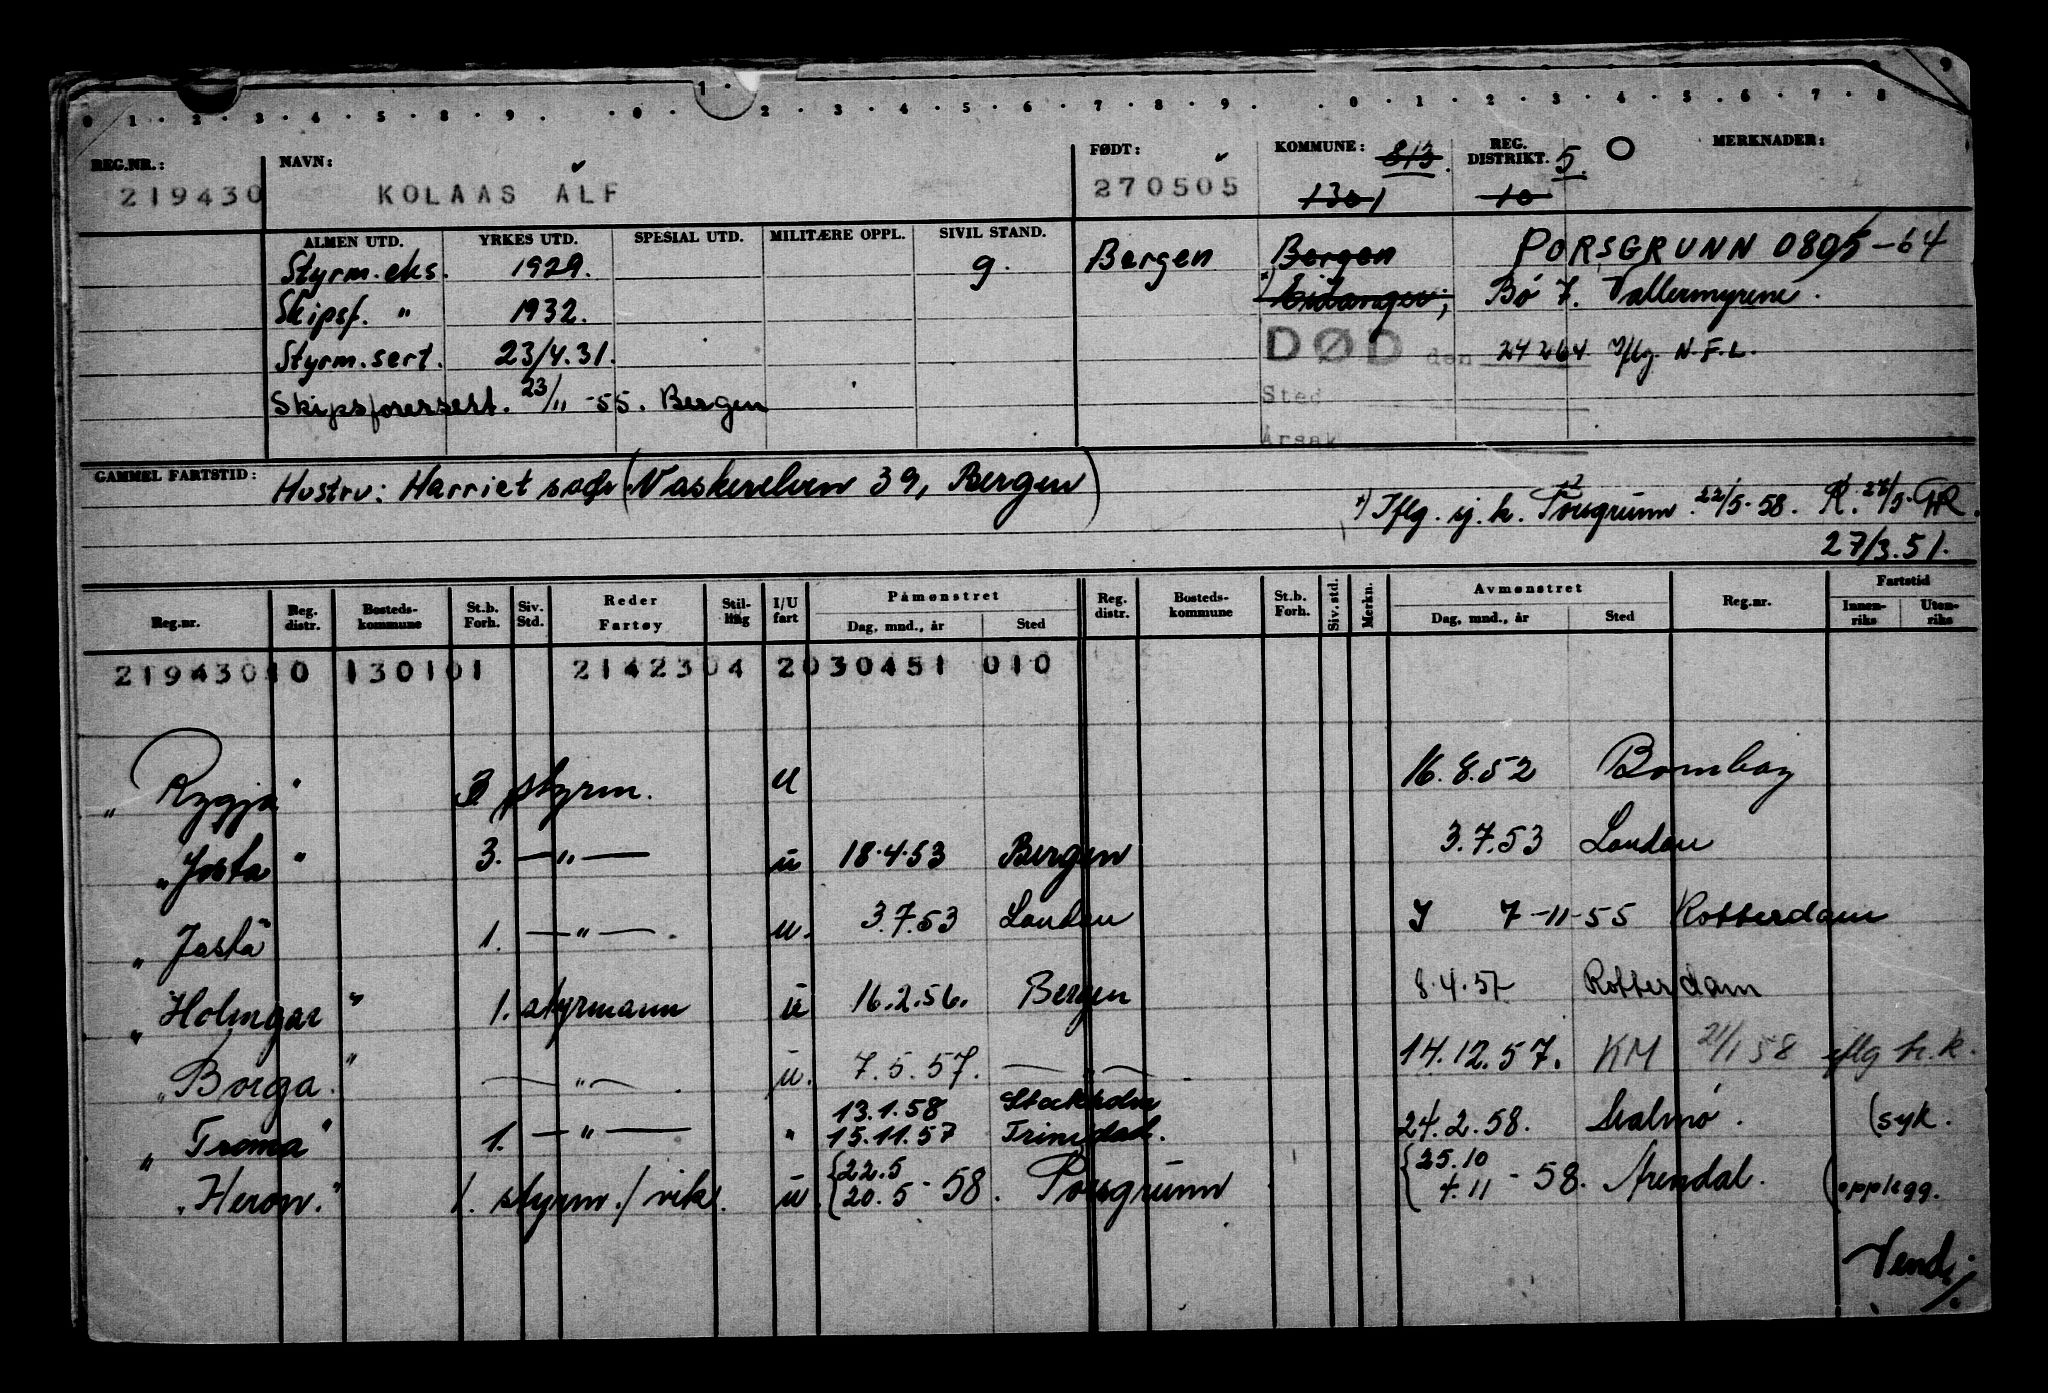 0 · 1 · 2 · 3 · 4 · 5 · 8 · 9 · · 0 · 1 · 2 · 3 · 4 · 5 · 6 · 7 · 8 · 9 · · 0 · 1 · 2 · 3 · 4 · 5 · 6 · 7 · 8 9
REG.NR.: NAVN: FØDT: KOMMUNE: 813 REG. DISTRIKT. 5 O MERKNADER:
219430 KOLAAS ALF 270505 1301 10
ALMEN UTD. YRKES UTD. SPESIAL UTD. MILITÆRE OPPL. SIVIL STAND.
Styrm.eks. 1929. g. Bergen Bergen PORSGRUNN 0805-64
Skipsf. " 1932. Eidanger; Bø 7. Vallermyrene.
Styrm.sert. 23/4.31. DØD den 24264 Iflg. N.F.L.
Skipsførersert. 23/11-55. Bergen Sted
Årsak
GAMMEL FARTSTID: Hustru: Harriet sads (Vaskerelven 39, Bergen)
*) Iflg. sj. k. Porsgrunn 22/5-58. R. 28/5- GR.
27/3.51.
Reg.nr. Reg. distr. Bosteds- kommune St.b. Forh. Siv. Std. Reder Fartøy Stil- ling I/U fart Påmønstret Dag, mnd., år Sted Reg. distr. Bosteds- kommune St.b. Forh. Siv. std. Merkn. Avmønstret Dag, mnd., år Sted Reg.nr. Fartstid Innen- riks Uten- riks
21943010 130101 2142304 2030451 010
"Rygja" 3 styrm. u 16.8.52 Bombay
"Josta" 3. —"— u 18.4.53 Bergen 3.7.53 London
"Josta" 1. —"—. u. 3.7.53 London 7-11-55 Rotterdam
"Holmgar" 1. styrmann u 16.2.56. Bergen 8.4.57 Rotterdam
"Borga." —"—. u. 7.5.57. —"—. 14.12.57. KM 21/1 58 iflg h.k.
13.1.58 Stockholm
"Troma" 1. —"— " 15.11.57 Trinidad. 24.2.58. Malmø. (syk.
"Heron." 1. styrm./vik. u. {22.5 20.5 - 58. Porsgrunn {25.10 4.11 - 58. Arendal. (opplegg.
Vend ./.